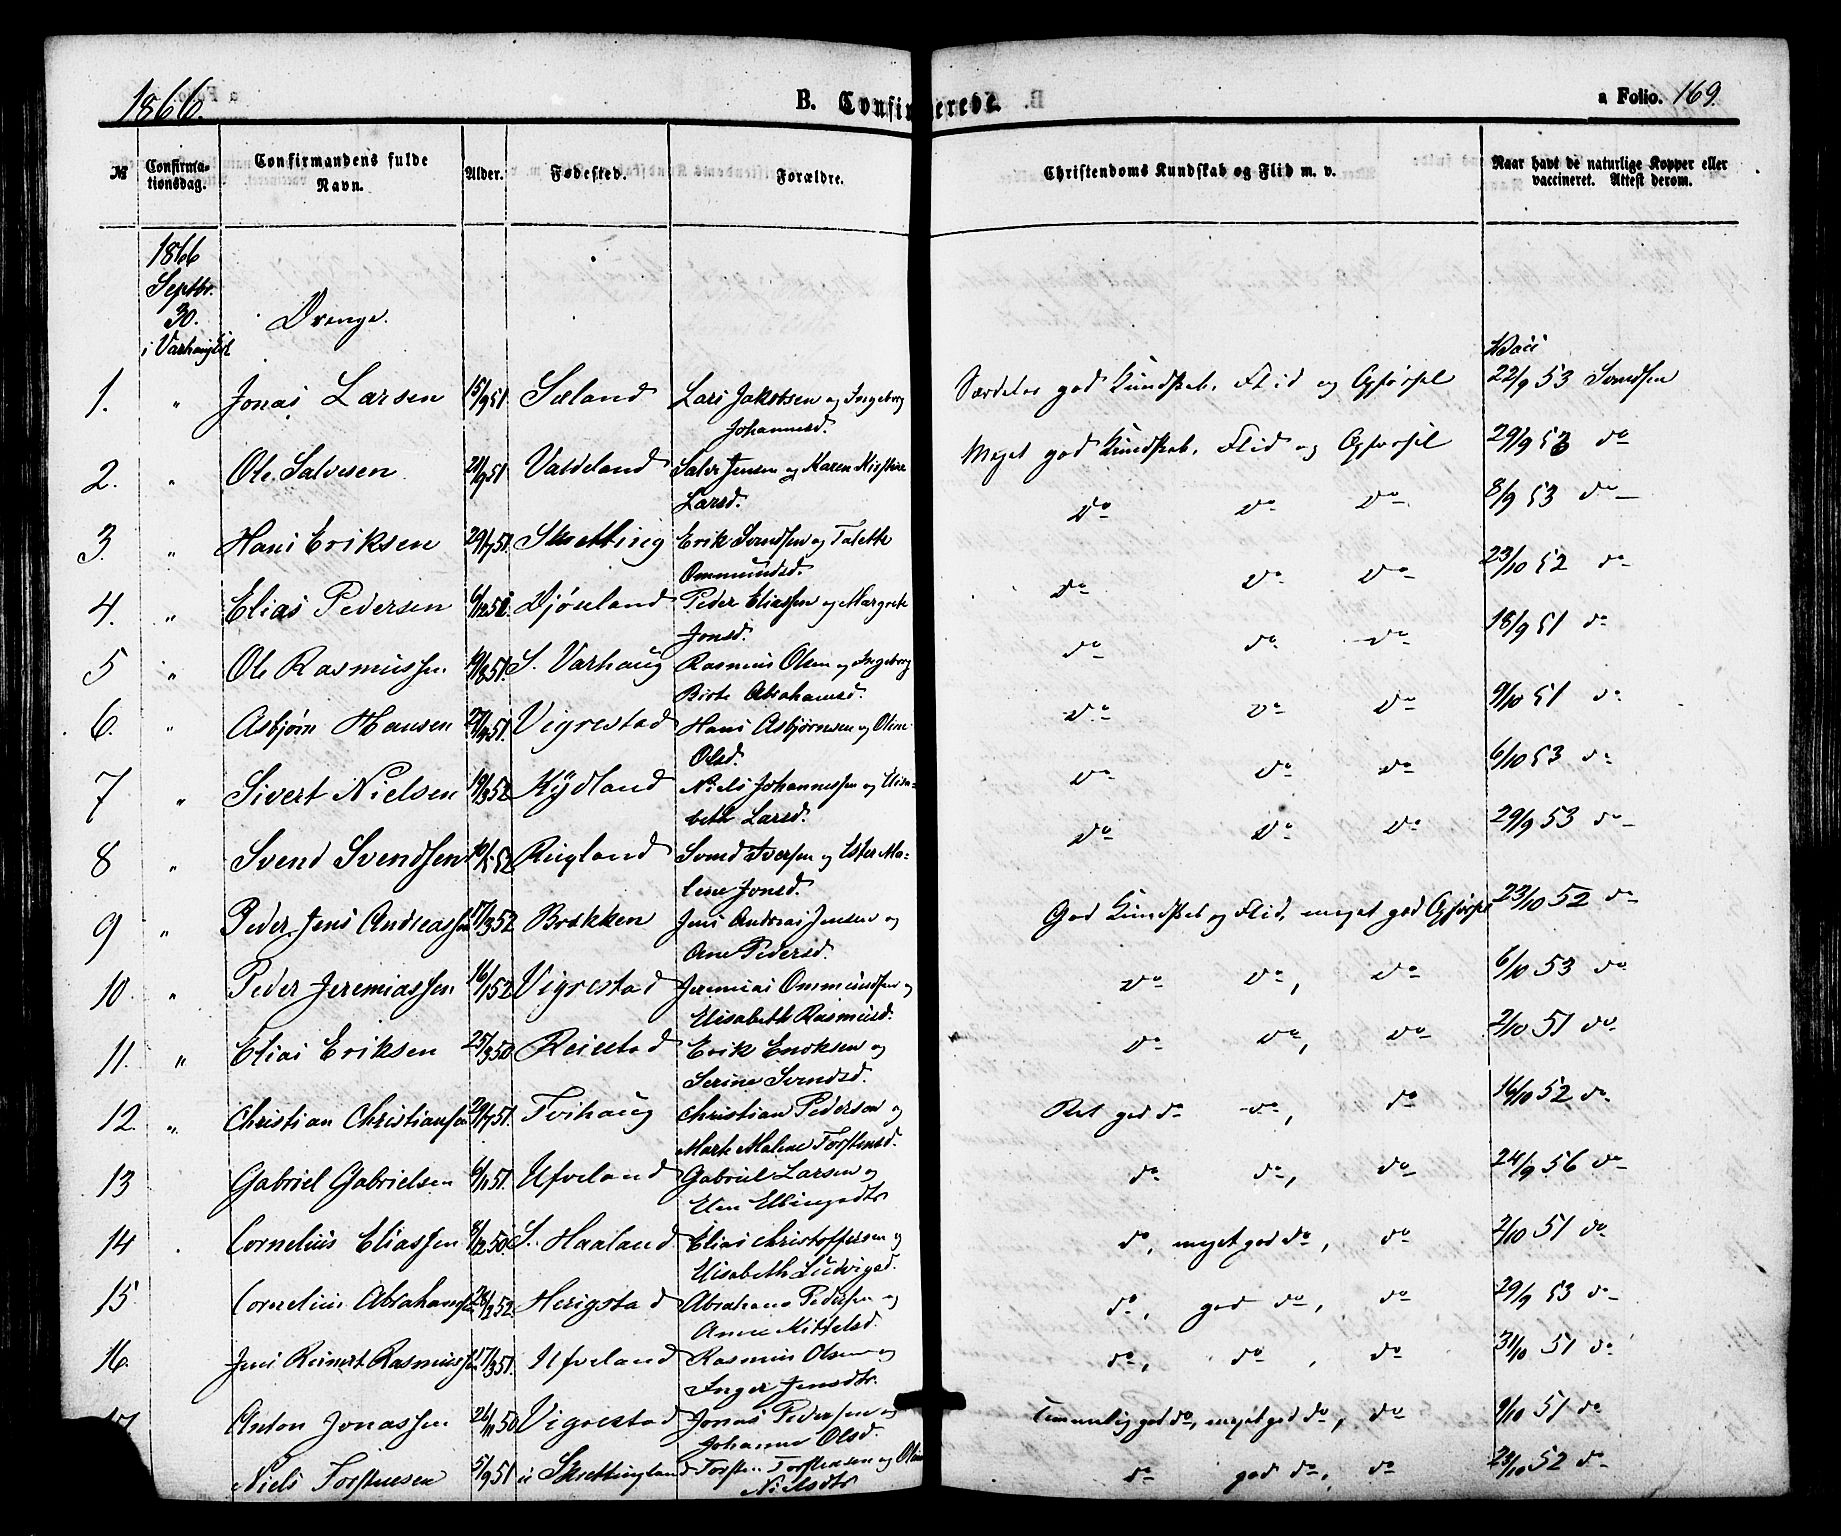 1866. B. Confirmerede. a Folio. 169.
№ Confirma-tionsdag. Confirmandens fulde Navn. Alder. Fødested. Forældre. Christendoms Kundskab og Flid m. v. Naar havt de naturlige Kopper eller vaccineret. Attest derom.
1866
Septbr.
30.
i Varhaug
Drenge.
Vacc
1. " Jonas Larsen 15/9 51 Sæland Lars Jakobsen og Ingeborg Særdeles god Kundskab, Flid og Opførsel 22/9 53 Svendsen
Johannesd.
2. " Ole Salvesen 21/9 51 Valdeland Salve Jensen og Karen Kirstine Meget god Kundskab, Flid og Opførsel 29/9 53 do
Larsd.
3. " Hans Eriksen 29/7 51 Skretting Erik Svendsen og Talette do do do 8/9 53 do
Ommundsd.
4. " Elias Pedersen 6/12 51 Djøseland Peder Eliassen og Margrete do do do 23/10 52 do
Jonsd.
5 " Ole Rasmussen 19/8 51 S. Varhaug Rasmus Olsen og Ingeborg do do do 18/9 51 do
Birte Abrahamsd.
6. " Asbjørn Hansen 51. Vigrestad Hans Asbjørnsen og Oline do do do 9/10 51 do
Olsd.
7 " Sivert Nielsen 19/3 52 Kydland Niels Johannessen og Elisa- do do do 6/10 53 do
beth Larsd.
8 " Svend Svendsen 52 Rugland Svend Iversen og Ester Ma- do do do 29/9 53 do
lene Jonsd.
9 " Peder Jens Andreassen 17/3 52 Brækken Jens Andreas Jensen og God Kundskab og Flid, meget god Opførsel 23/10 52 do
Ane Pedersd.
10. " Peder Jeremiassen 16/1 52 Vigrestad Jeremias Ommundsen og do do, do 6/10 53 do
Elisabeth Rasmusd.
11. " Elias Eriksen 25/3 50 Reiestad Erik Eriksen og do do, do 2/10 51 do
Serine Svendsd.
12. " Christian Christiansen 29/7 51. Tvihaug Christian Pedersen og Ret god do do, do 16/10 52 do
Marte Malene Torstensd.
13 Gabriel Gabrielsen 6/11 51. Ufveland Gabriel Larsen og do do, do 24/9 56 do
Elen Ellingsdtr
14 Cornelius Eliassen 8/12 50 S. Haaland Elias Christoffersen og do, meget god do, do 2/10 51 do
Elisabeth Ludvigsd.
15 Cornelius Abrahamsen 52. Herigstad Abraham Pedersen og do, god do, do 29/9 53 do
Anne Kittelsd.
16. Jens Reinert Rasmussen 17/3 51. Ufveland Rasmus Olsen og do, do, do 31/10 51 do
Inger Jensdtr.
17 Anton Jonassen 26/11 50 Vigrestad Jonas Pedersen og Temmelig god do, meget god do, do 9/10 51 do
Johanne Olsd.
Niels Torstensen 5/9 51 Skrettingland Torsten Torstensen og Oline do god do, do 23/10 52 do
Nielsdtr